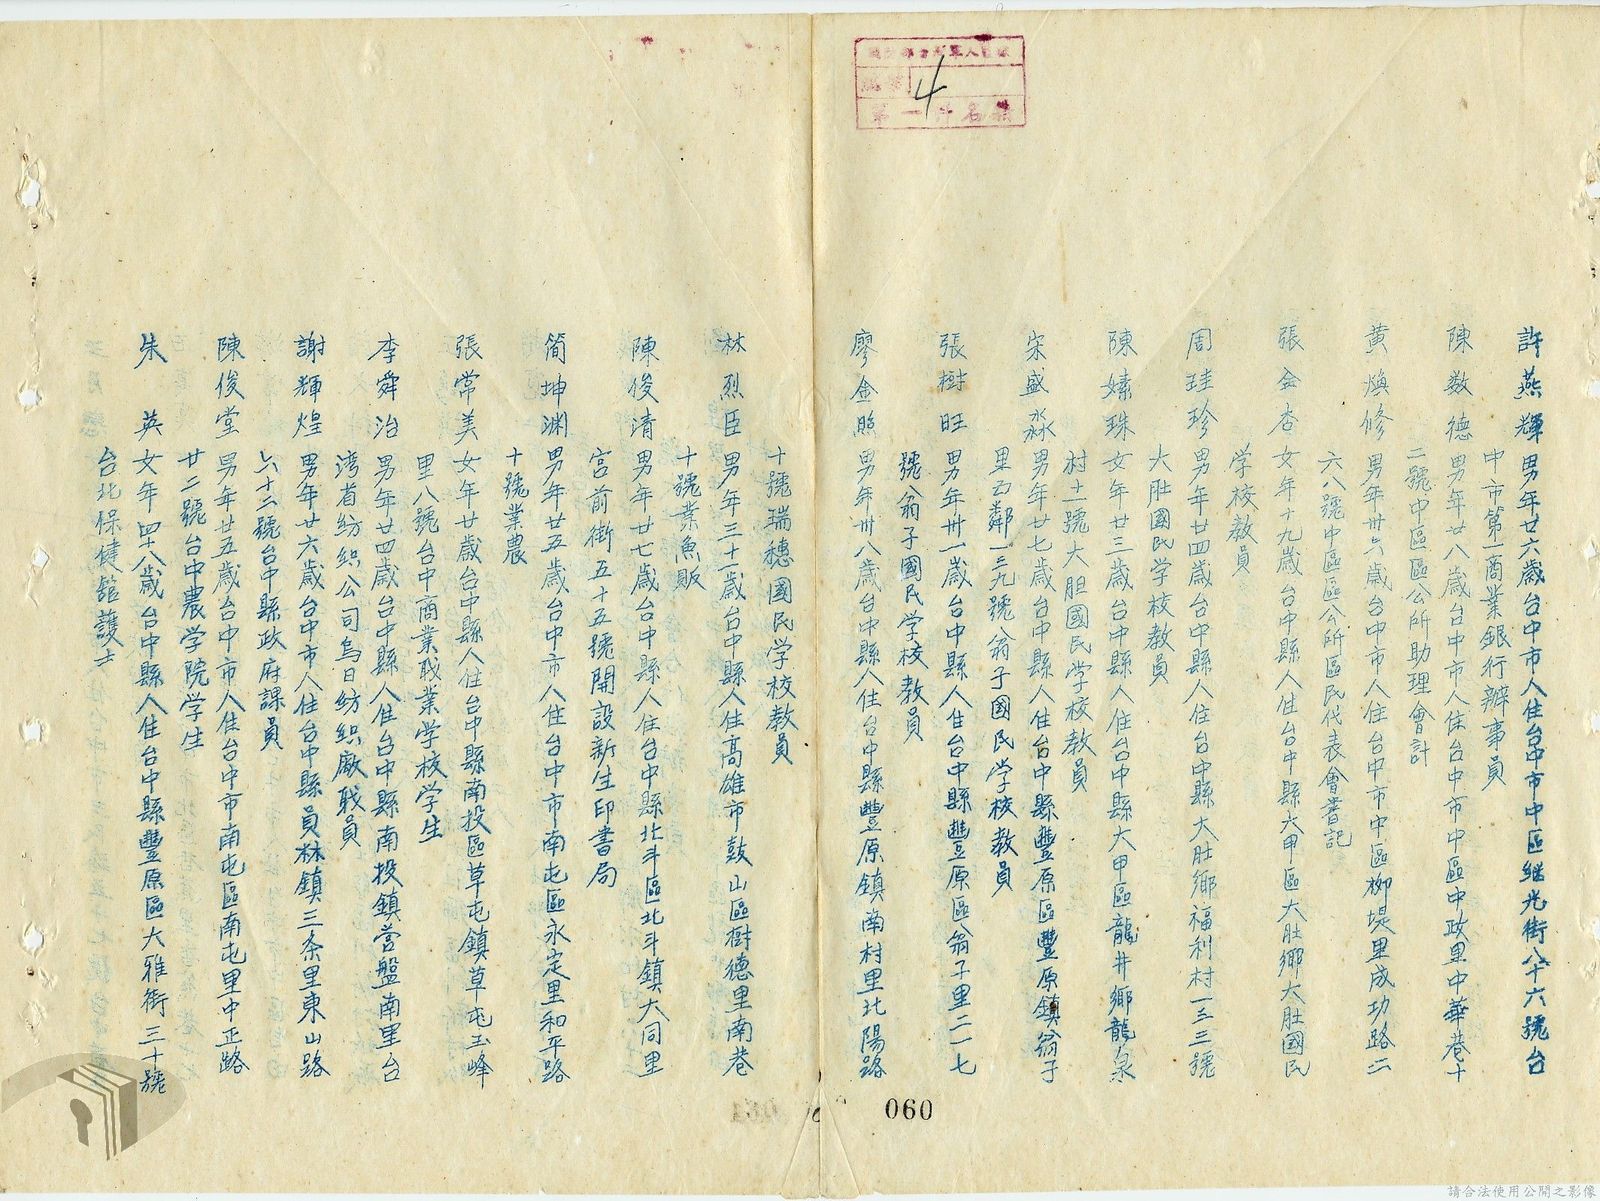 4
許燕輝男年廿六歲台中市人住台中市中區继光街八十六號台
中市第一商業銀行辦事員
陳数德男年廿八歲台中市人住台中市中區中政里中華巷十
二號中區區公所助理會計
黄煥修男年卅六歲台中市人住台中市中區柳堤里成功路二
六八號中區區公所區民代表會書記
張金杏女年十九歲台中縣人住台中縣大甲區大肚鄉大肚國民
学校教員
周珪珍男年廿四歲台中縣人住台中縣大肚鄉福利村一三三號
大肚國民学校教員
陳嫊珠女年廿三歲台中縣人住台中縣大甲區龍井鄉龍泉
村十一號大胆國民学校教員
宋盛淼男年廿七歲台中縣人住台中縣豐原區豐原鎮翁子
里五鄰一三九號翁子國民学校教員
張樹旺男年卅一歲台中縣人住台中縣豐原區翁子里二一七
號翁子國民学校教員
廖金照男年卅八歲台中縣人住台中縣豐原鎮南村里北陽路
十號瑞穗國民学校教員
林烈臣男年三十一歲台中縣人住高雄市鼓山區樹德里南巷
十號業魚販
陳俊清男年廿七歲台中縣人住台中縣北斗區北斗鎮大同里
宮前街五十五號開設新生印書局
简坤渊男年廿五歲台中市人住台中市南屯區永定里和平路
十號業農
張常美女年廿歲台中縣人住台中縣南投區草屯鎮草屯玉峰
里八號台中商業职業学校学生
李舜治男年廿四歲台中縣人住台中縣南投鎮营盤南里台
湾省纺织公司烏日纺织廠职員
謝輝煌男年廿六歲台中市人住台中縣員林鎮三条里東山路
六十二號台中縣政府課員
陳俊堂男年廿五歲台中市人住台中市南屯區南屯里中正路
廿二號台中農学院学生
朱英女年四十八歲台中縣人住台中縣豐原區大雅街三十號
台北保健舘護士
060
請合法使用公開之影像